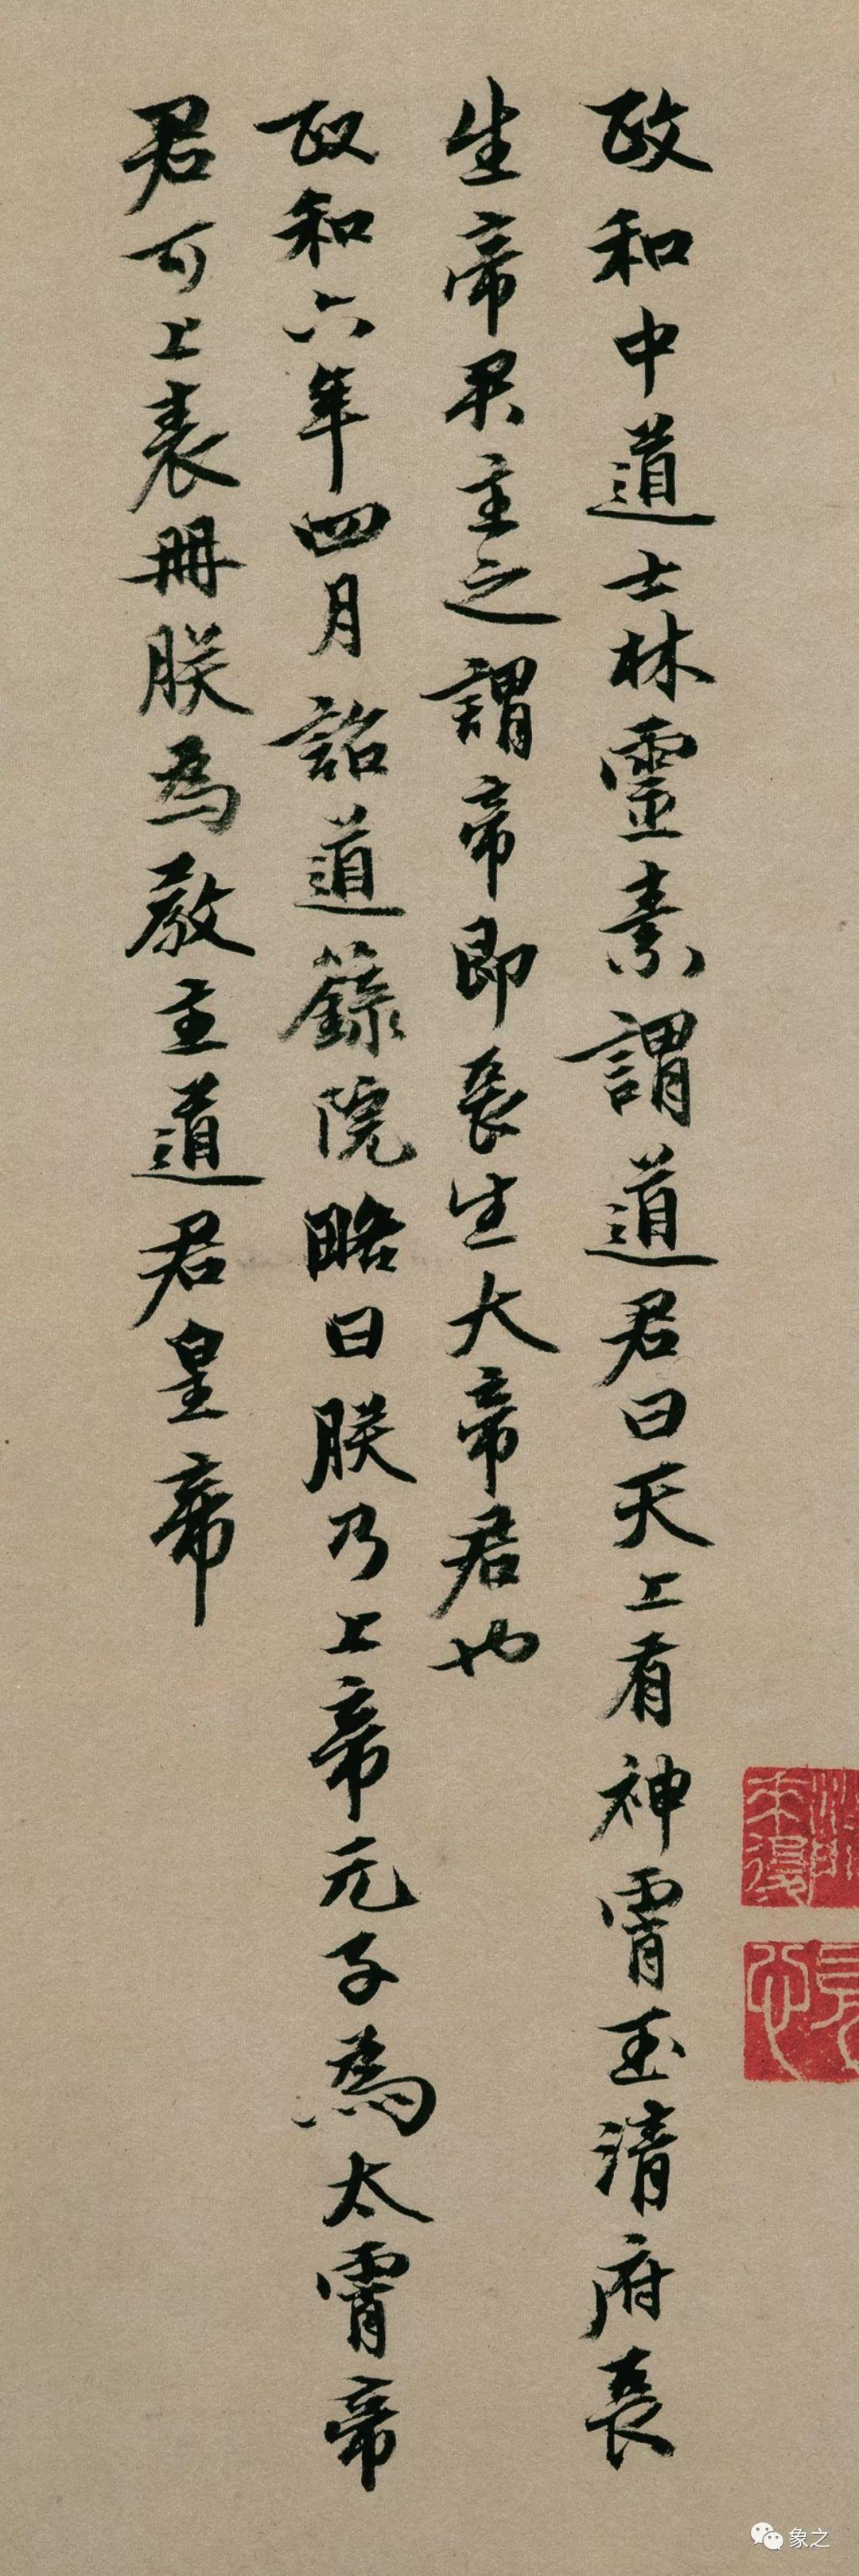 政和中道士林靈素謂道君曰天上有神霄玉清府長
生帝君主之謂帝即長生大帝君也
政和六年四月詔道籙院略曰朕乃上帝元子為太霄帝
君可上表冊朕為教主道君皇帝
象之